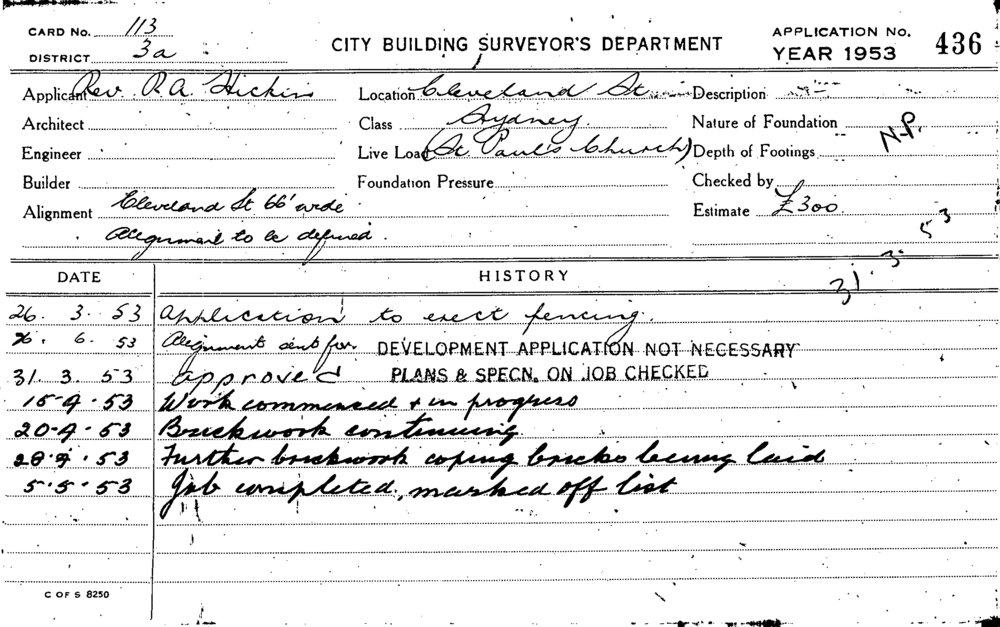 CARD No. 113
DISTRICT 3a
CITY BUILDING SURVEYOR'S DEPARTMENT
APPLICATION No. 436
YEAR 1953
Applicant Rev. R.A. Hickin
Location Cleveland St
Description
Architect
Class Sydney
Nature of Foundation
N.P.
Engineer
Live Load (St Paul's Church)
Depth of Footings
Builder
Foundation Pressure
Checked by
Alignment Cleveland St 66' wide
Estimate £300
Alignment to be defined.
31.3.53
DATE HISTORY
26. 3. 53 Application to erect fencing.
6. 53 Alignment sent for DEVELOPMENT APPLICATION NOT NECESSARY
31. 3. 53 approved PLANS & SPECN. ON JOB CHECKED
15-4-53 Work commenced & in progress
20-4-53 Brickwork continuing
28.4.53 Further brickwork coping bricks being laid
5.5.53 Job completed, marked off list
C OF S 8250